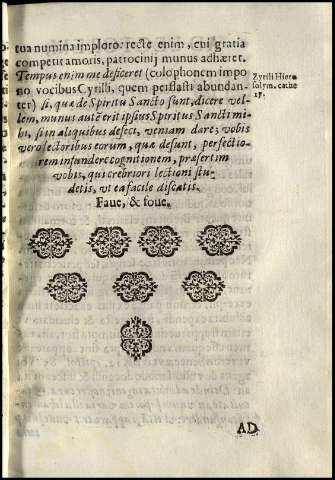 tua numina imploro: recte enim, cui gratia
competit amoris, patrocinij munus adhæret.
Tempus enim me deficeret (colophonem impo
no vocibus Cyrilli, quem perstasti abundan-
ter) si, quæ de Spiritu Sancto sunt, dicere vel-
lem, munus autē erit ipsius Spiritus Sancti mi-
hi, si in aliquibus defeci, veniam dare; vobis
vero lectoribus eorum, quæ desunt, perfectio-
rem infundere cognitionem, præsertim
vobis, qui crebriori lectioni stu-
detis, vt ea facile discatis.
Faue, & foue.
Zyrill Hiero
solym. cathe
17.
AD